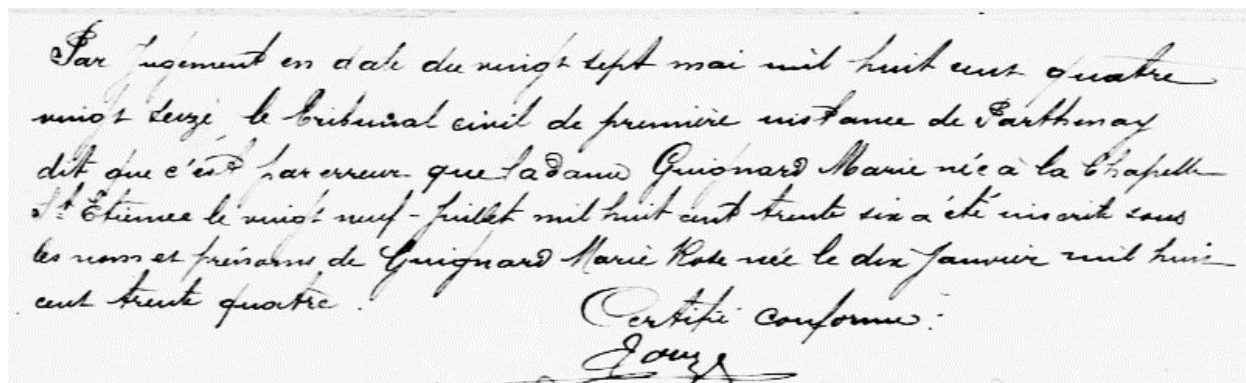 Par Jugement en date du vingt sept mai mil huit cent quatre
vingt seize le Tribunal civil de première instance de Parthenay
dit que c'est par erreur que la dame Guignard Marie née à la Chapelle
St Etienne le vingt neuf Juillet mil huit cent trente six a été inscrite sous
les noms et prénoms de Guignard Marie Rose née le dix Janvier mil huit
cent trente quatre.
Certifié conforme :